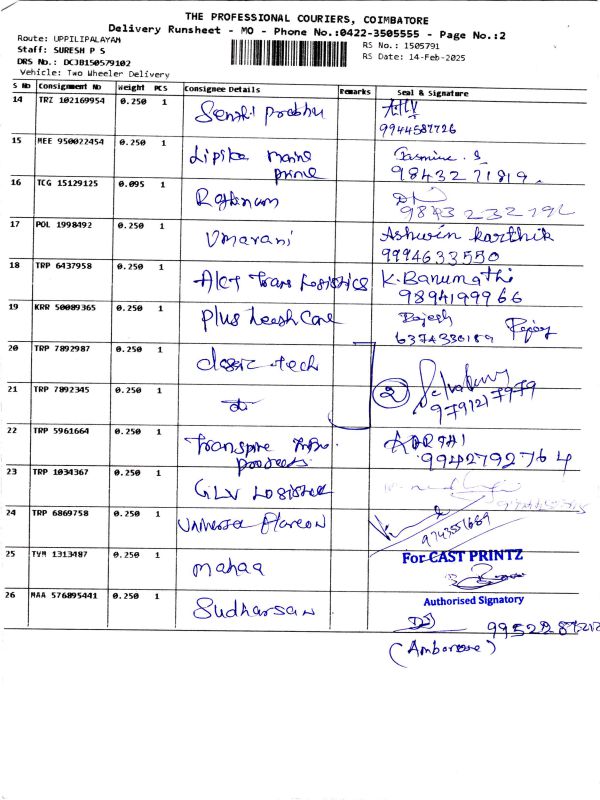 THE PROFESSIONAL COURIERS, COIMBATORE
Delivery Runsheet - MO - Phone No.:0422-3505555 - Page No.:2
Route: UPPILIPALAYAM
RS No.: 1505791
Staff: SURESH P S
DRS No.: DCJB150579102
RS Date: 14-Feb-2025
Vehicle: Two Wheeler Delivery
S No Consignment No Weight PCS Consignee Details Remarks Seal & Signature
14 TRZ 102169954 0.250 1 Senthil Prabhu
9944587726
15 MEE 950022454 0.250 1 Lipika marine Jasmine. S
prime 98432 71819.
16 TCG 15129125 0.095 1 Rathinam
98432 32792
17 POL 1998492 0.250 1 Umarani Ashwin Karthik
9994633550
18 TRP 6437958 0.250 1 Trans Logistics K. Banumathi
9894199966
19 KRR 50089365 0.250 1 Plus Leash Care Rajesh
6374330189
20 TRP 7892987 0.250 1 classic tech
21 TRP 7892345 0.250 1 2
9791217979
22 TRP 5961664 0.250 1 Transpire AARTHI
projects 9942792764
23 TRP 1034367 0.250 1 GLV Logistic
24 TRP 6869758 0.250 1 Universal
9743551689
25 TVM 1313487 0.250 1 mahaa For CAST PRINTZ
Authorised Signatory
26 MAA 576895441 0.250 1 Sudharsan